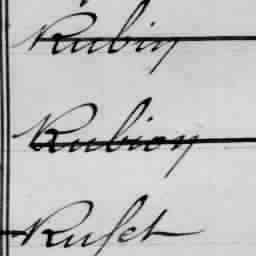 Rubin
Rubion
Ruſct